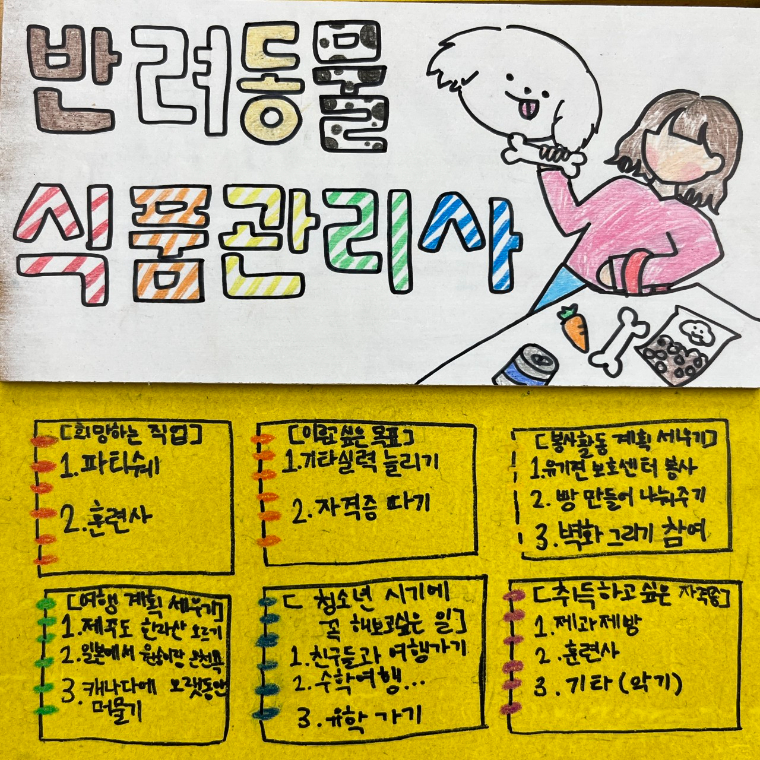 반려동물
식품관리사
[희망하는 직업]
1. 파티쉐
2. 훈련사
[이루고싶은 목표]
1. 기타실력 늘리기
2. 자격증 따기
[봉사활동 계획 세우기]
1. 유기견 보호센터 봉사
2. 빵 만들어 나눠주기
3. 벽화 그리기 참여
[여행 계획 세우기]
1. 제주도 한라산 오르기
2. 일본에서
3. 캐나다에 오랫동안
머물기
[청소년 시기에
꼭 해보고싶은 일]
1. 친구들과 여행가기
2. 수학여행...
3. 유학 가기
[취득하고 싶은 자격증]
1. 제과제빵
2. 훈련사
3. 기타 (악기)